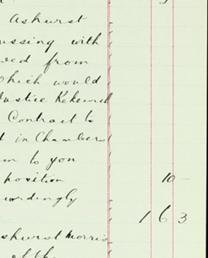 Ashurst
ussing with
ed from
which would
Justice Kekewich
Contract to
t in Chambers
m to you
position 10 -
ordingly
1 6 3
shurst Morris
of the